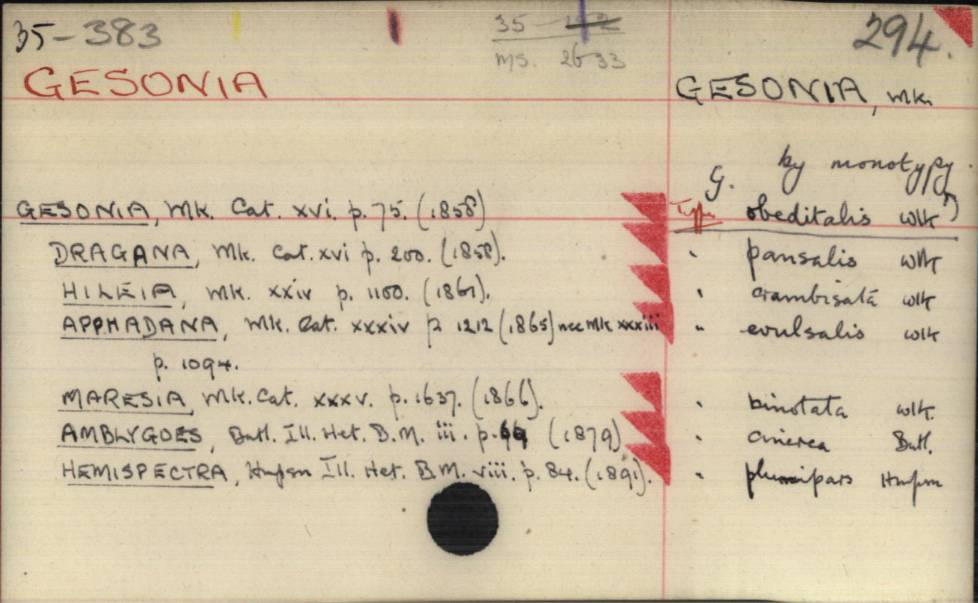 35-383
35-
MS. 2633
294.
GESONIA
GESONIA, Wlk.
G. by monotypy.
GESONIA, Wlk. Cat. xvi. p. 75. (1858) Type obeditalis Wlk
DRAGANA, Wlk. Cat. xvi p. 200. (1858). " pansalis Wlk
HILEIA, Wlk. xxiv p. 1100. (1861). " crambisata Wlk
APPHADANA, Wlk. Cat. xxxiv p 1212 (1865) nec Wlk xxxiii " evulsalis Wlk
p. 1094.
MARESIA, Wlk. Cat. xxxv. p. 1637. (1866). " binotata Wlk.
AMBLYGOES, Butl. Ill. Het. B.M. iii. p. (1879) " cinerea Butl.
HEMISPECTRA, Hmpsn Ill. Het. B.M. viii. p. 84. (1891). " plumipars Hmpsn